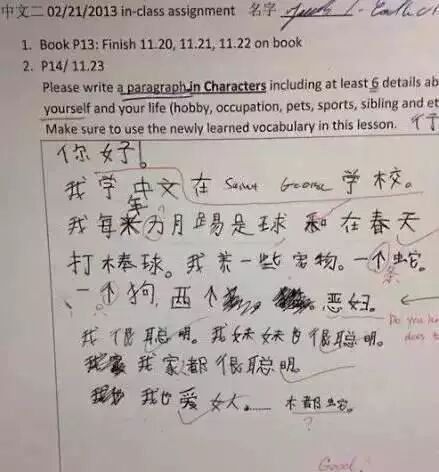 中文二 02/21/2013 in-class assignment 名字
1. Book P13: Finish 11.20, 11.21, 11.22 on book
2. P14/ 11.23
Please write a paragraph in Characters including at least 6 details ab
yourself and your life (hobby, occupation, pets, sports, sibling and et
Make sure to use the newly learned vocabulary in this lesson.
你好!
我学中文在 Saint George 学校。
年
我每来力月踢足球和在春天
打棒球。我养一些宠物。一个蛇。
条
一个狗,两个 。恶妇。
Do you
does
我很聪明。我妹妹也很聪明。
我家都很聪明。
我也爱女人...... 木都蛇。
?
Good!